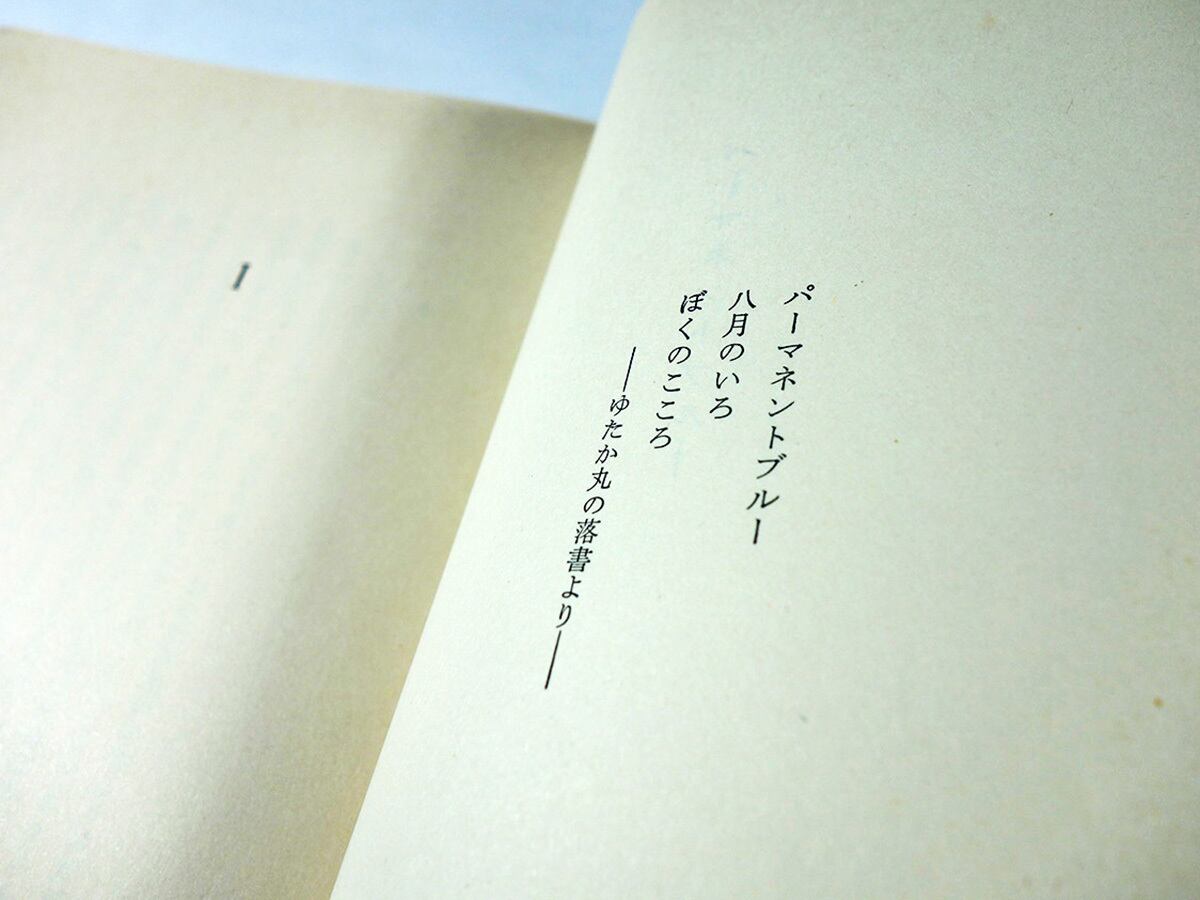 パーマネントブルー
八月のいろ
ぼくのこころ
――ゆたか丸の落書より――
I